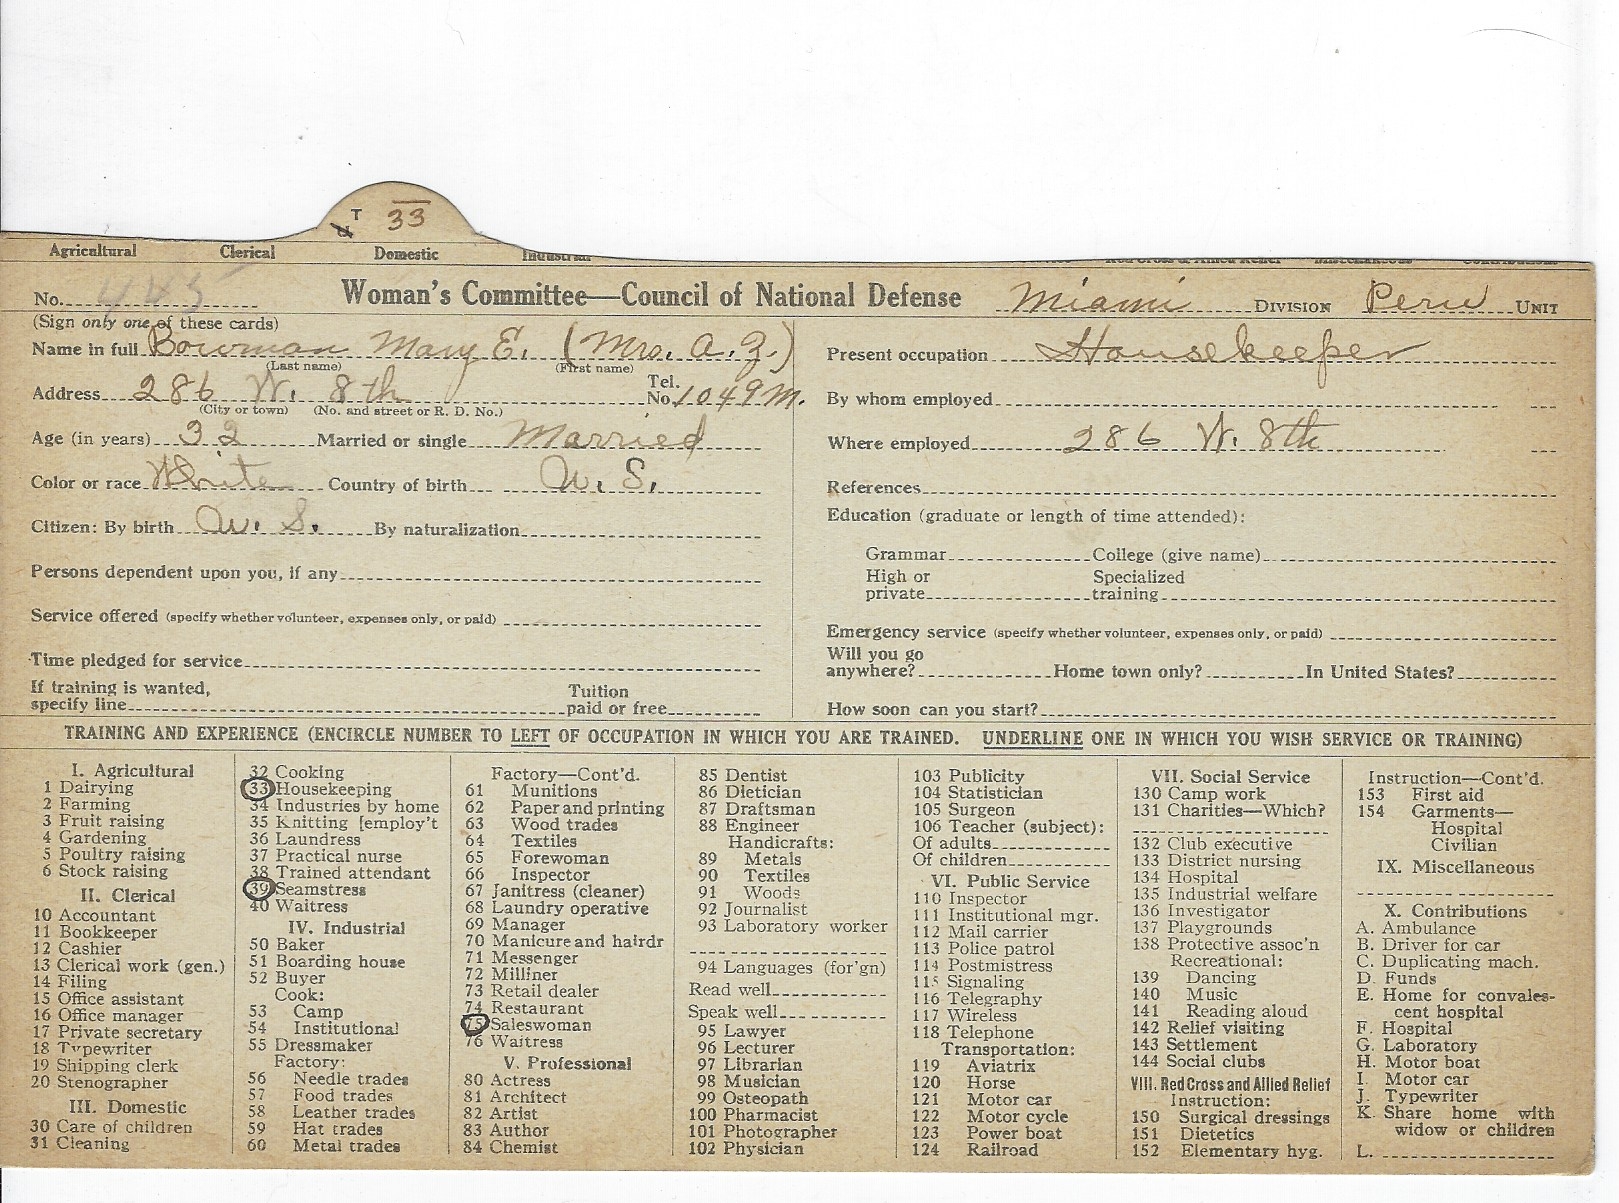 T 33
Agricultural Clerical Domestic Industrial
No. 445 Woman's Committee—Council of National Defense Miami DIVISION Peru UNIT
(Sign only one of these cards)
Name in full Bowman Mary E. (Mrs. A. Z.)
(Last name) (First name)
Address 286 W. 8th Tel. No. 1049 M.
(City or town) (No. and street or R. D. No.)
Age (in years) 32 Married or single Married
Color or race White Country of birth U. S.
Citizen: By birth U. S. By naturalization
Persons dependent upon you, if any
Service offered (specify whether volunteer, expenses only, or paid)
Time pledged for service
If training is wanted, specify line Tuition paid or free
Present occupation Housekeeper
By whom employed
Where employed 286 W. 8th
References
Education (graduate or length of time attended):
Grammar College (give name)
High or private Specialized training
Emergency service (specify whether volunteer, expenses only, or paid)
Will you go anywhere? Home town only? In United States?
How soon can you start?
TRAINING AND EXPERIENCE (ENCIRCLE NUMBER TO LEFT OF OCCUPATION IN WHICH YOU ARE TRAINED. UNDERLINE ONE IN WHICH YOU WISH SERVICE OR TRAINING)
I. Agricultural
1 Dairying
2 Farming
3 Fruit raising
4 Gardening
5 Poultry raising
6 Stock raising
II. Clerical
10 Accountant
11 Bookkeeper
12 Cashier
13 Clerical work (gen.)
14 Filing
15 Office assistant
16 Office manager
17 Private secretary
18 Typewriter
19 Shipping clerk
20 Stenographer
III. Domestic
30 Care of children
31 Cleaning
32 Cooking
33 Housekeeping
34 Industries by home
35 Knitting [employ't
36 Laundress
37 Practical nurse
38 Trained attendant
39 Seamstress
40 Waitress
IV. Industrial
50 Baker
51 Boarding house
52 Buyer
Cook:
53 Camp
54 Institutional
55 Dressmaker
Factory:
56 Needle trades
57 Food trades
58 Leather trades
59 Hat trades
60 Metal trades
Factory—Cont'd.
61 Munitions
62 Paper and printing
63 Wood trades
64 Textiles
65 Forewoman
66 Inspector
67 Janitress (cleaner)
68 Laundry operative
69 Manager
70 Manicure and hairdr
71 Messenger
72 Milliner
73 Retail dealer
74 Restaurant
75 Saleswoman
76 Waitress
V. Professional
80 Actress
81 Architect
82 Artist
83 Author
84 Chemist
85 Dentist
86 Dietician
87 Draftsman
88 Engineer
Handicrafts:
89 Metals
90 Textiles
91 Woods
92 Journalist
93 Laboratory worker
94 Languages (for'gn)
Read well
Speak well
95 Lawyer
96 Lecturer
97 Librarian
98 Musician
99 Osteopath
100 Pharmacist
101 Photographer
102 Physician
103 Publicity
104 Statistician
105 Surgeon
106 Teacher (subject):
Of adults
Of children
VI. Public Service
110 Inspector
111 Institutional mgr.
112 Mail carrier
113 Police patrol
114 Postmistress
115 Signaling
116 Telegraphy
117 Wireless
118 Telephone
Transportation:
119 Aviatrix
120 Horse
121 Motor car
122 Motor cycle
123 Power boat
124 Railroad
VII. Social Service
130 Camp work
131 Charities—Which?
132 Club executive
133 District nursing
134 Hospital
135 Industrial welfare
136 Investigator
137 Playgrounds
138 Protective assoc'n
Recreational:
139 Dancing
140 Music
141 Reading aloud
142 Relief visiting
143 Settlement
144 Social clubs
VIII. Red Cross and Allied Relief
Instruction:
150 Surgical dressings
151 Dietetics
152 Elementary hyg.
Instruction—Cont'd.
153 First aid
154 Garments—
Hospital
Civilian
IX. Miscellaneous
X. Contributions
A. Ambulance
B. Driver for car
C. Duplicating mach.
D. Funds
E. Home for convales-
cent hospital
F. Hospital
G. Laboratory
H. Motor boat
I. Motor car
J. Typewriter
K. Share home with
widow or children
L.